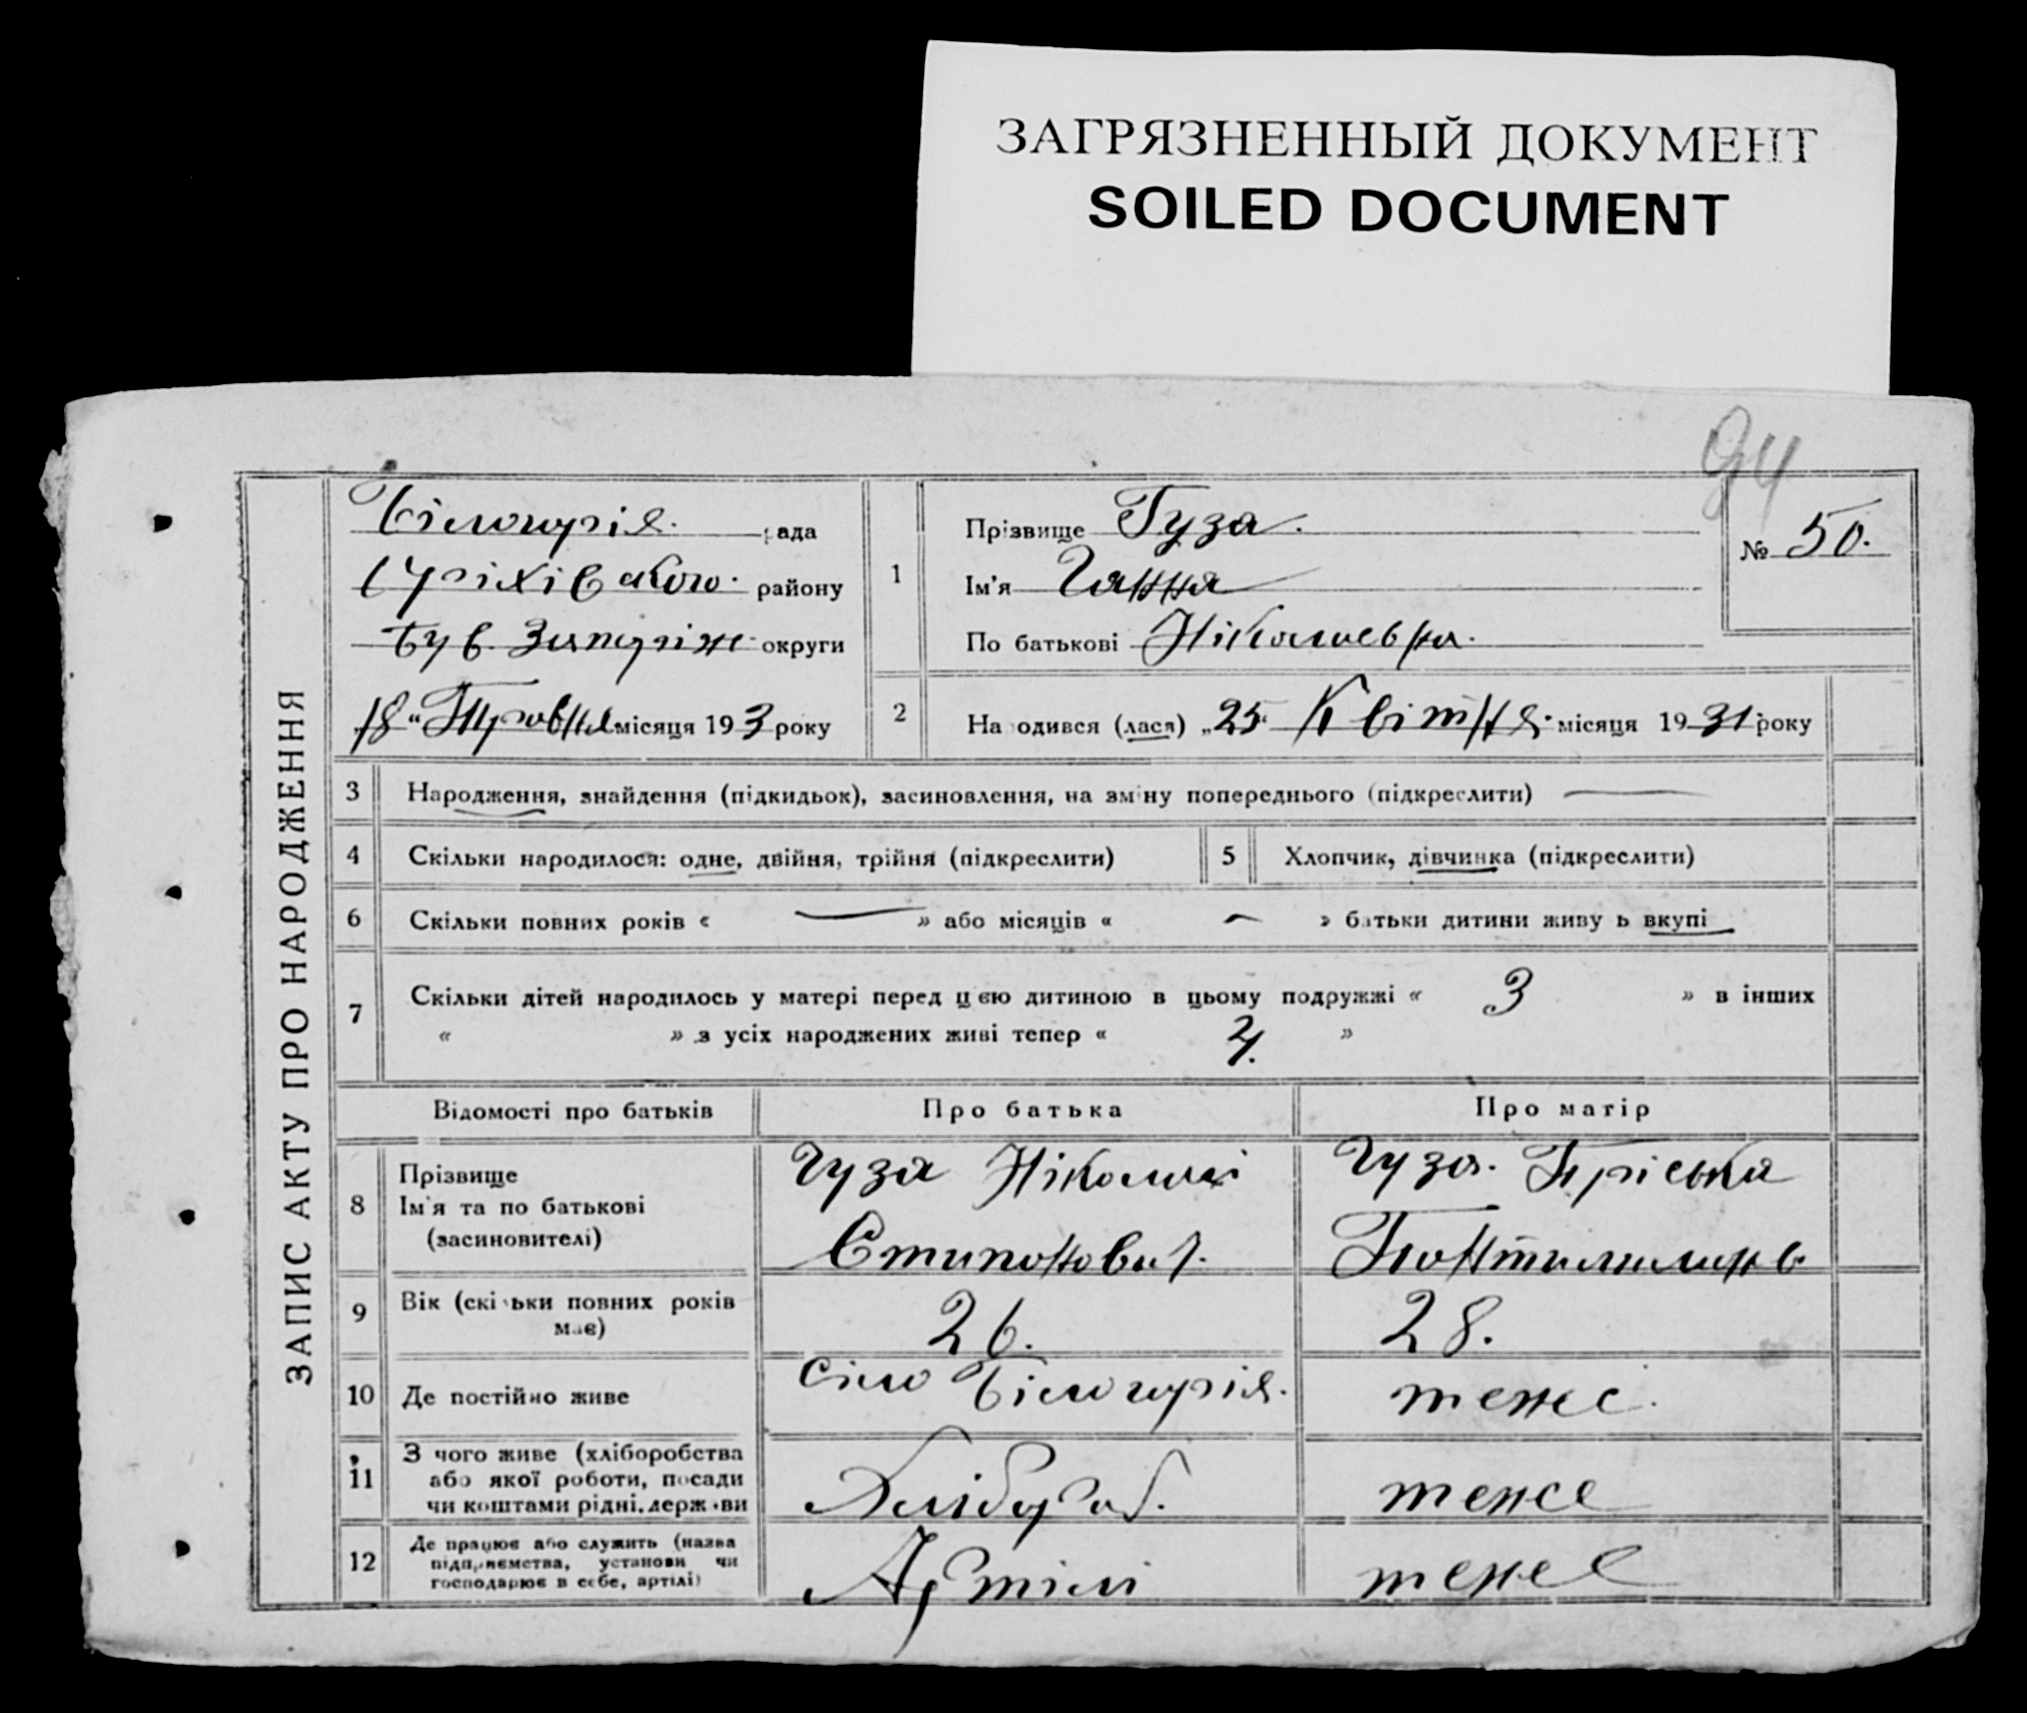 ЗАГРЯЗНЕННЫЙ ДОКУМЕНТ
SOILED DOCUMENT
94
ЗАПИС АКТУ ПРО НАРОДЖЕННЯ
Білогорія. рада
Оріхівського. району
Був. Запоріж округи
18 " Травня місяця 193 3 року
1
Прізвище Гуза.
Ім'я Ганна
По батькові Ніколаєвна.
№ 50.
2 На одився (лася) „25" Квітня. місяця 1931 року
3 Народження, знайдення (підкидьок), засиновлення, на зміну попереднього (підкреслити) —
4 Скільки народилося: одне, двійня, трійня (підкреслити)
5 Хлопчик, дівчинка (підкреслити)
6 Скільки повних років « — » або місяців « — » батьки дитини живу ь вкупі
7 Скільки дітей народилось у матері перед цією дитиною в цьому подружжі « 3 » в інших
« » з усіх народжених живі тепер « 4. »
Відомості про батьків Про батька Про матір
8 Прізвище
Ім'я та по батькові
(засиновителі)
Гуза Ніколай
Стипонович.
Гуза. Пріська
9 Вік (скільки повних років
має)
26.
28.
10 Де постійно живе
Сіло Білогорія.
теже.
11 З чого живе (хліборобства
або якої роботи, посади
чи коштами рідні, держави
Хлібороб.
теже
12 Де працює або служить (назва
підприємства, установи чи
господарює в себе, артілі)
Артілі
теже